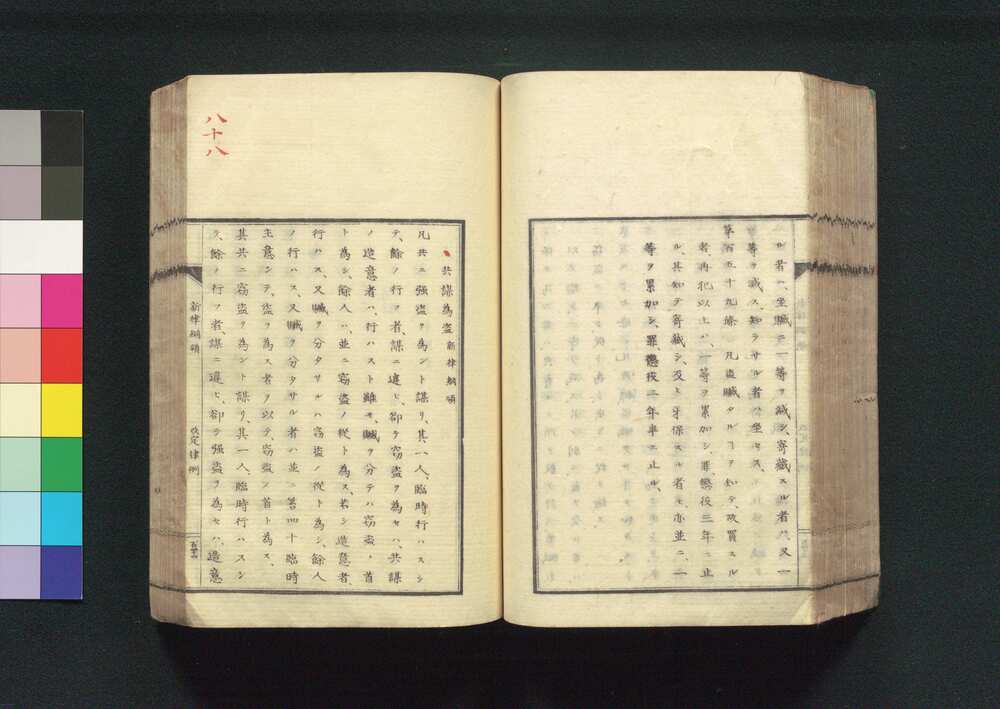 ル者ハ、坐贓ニ一等ヲ減シ、寄藏スル者ハ、又一
等ヲ減ス、知ラサル者ハ坐セス、
第百五十九條 凡盜贓タルヿヲ知テ、故買スル
者、再犯以上ハ、一等ヲ累加シ、罪懲役三年ニ止
ル、其知テ寄藏シ、及ヒ牙保スル者モ、亦並ニ、一
等ヲ累加シ、罪、懲役二年半ニ止ル、
八十八
共謀為盜 新律綱領
凡共ニ強盜ヲ為ント謀リ、其一人、臨時行ハスシ
テ、餘ノ行フ者、謀ニ違ヒ、卻テ竊盜ヲ為セハ、共謀
ノ造意者ハ、行ハスト雖モ、贓ヲ分テハ竊盜ノ首
ト為シ、餘人ハ、並ニ竊盜ノ從ト為ス、若シ造意者
行ハス、又贓ヲ分タサルハ竊盜ノ從ト為シ、餘人
ノ行ハス、又贓ヲ分タサル者ハ並ニ笞四十臨時
主意シテ、盜ヲ為ス者ヲ以テ、竊盜ノ首ト為ス、
其共ニ竊盜ヲ為ント謀リ、其一人、臨時行ハスシ
テ、餘ノ行フ者、謀ニ違ヒ、卻テ強盜ヲ為セハ、造意
新律綱領 改定律例